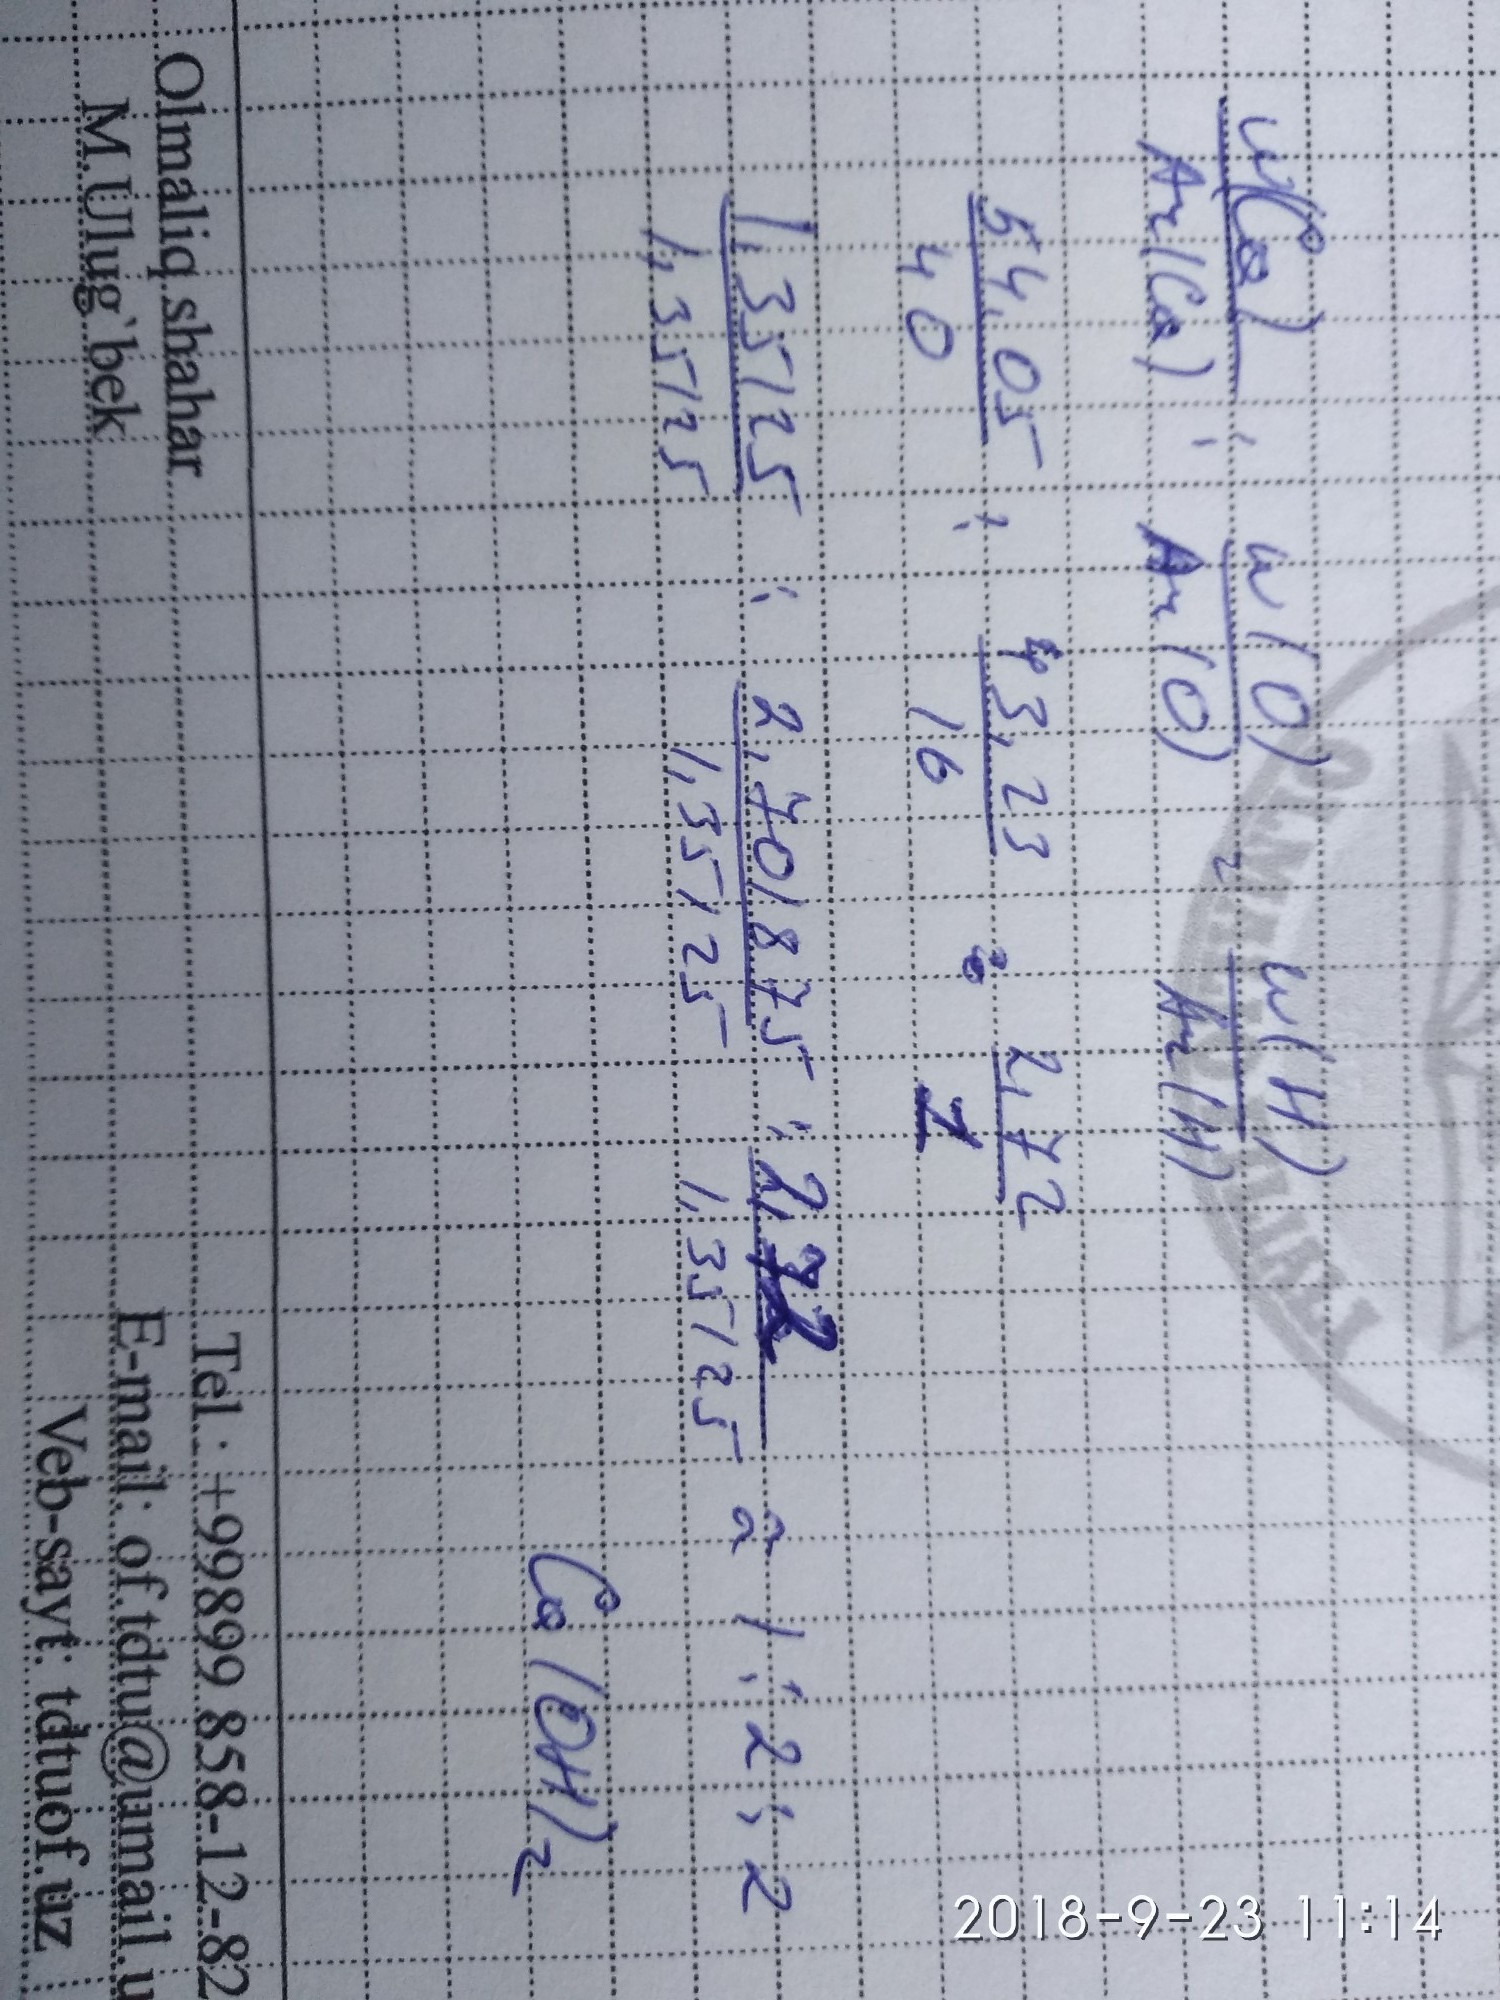 w(Ca) : w(O) : w(H)
Ar(Ca) Ar(O) Ar(H)
54,05 : 43,23 : 2,72
40 16 1
1,35125 : 2,701875 : 2,72 ≈ 1:2:2
1,35125 1,35125 1,35125
Ca(OH)2
Olmaliq shahar Tel.: +99899 858-12-82
M.Ulug`bek E-mail: of.tdtu@umail.u
Veb-sayt: tdtuof.uz
2018-9-23 11:14